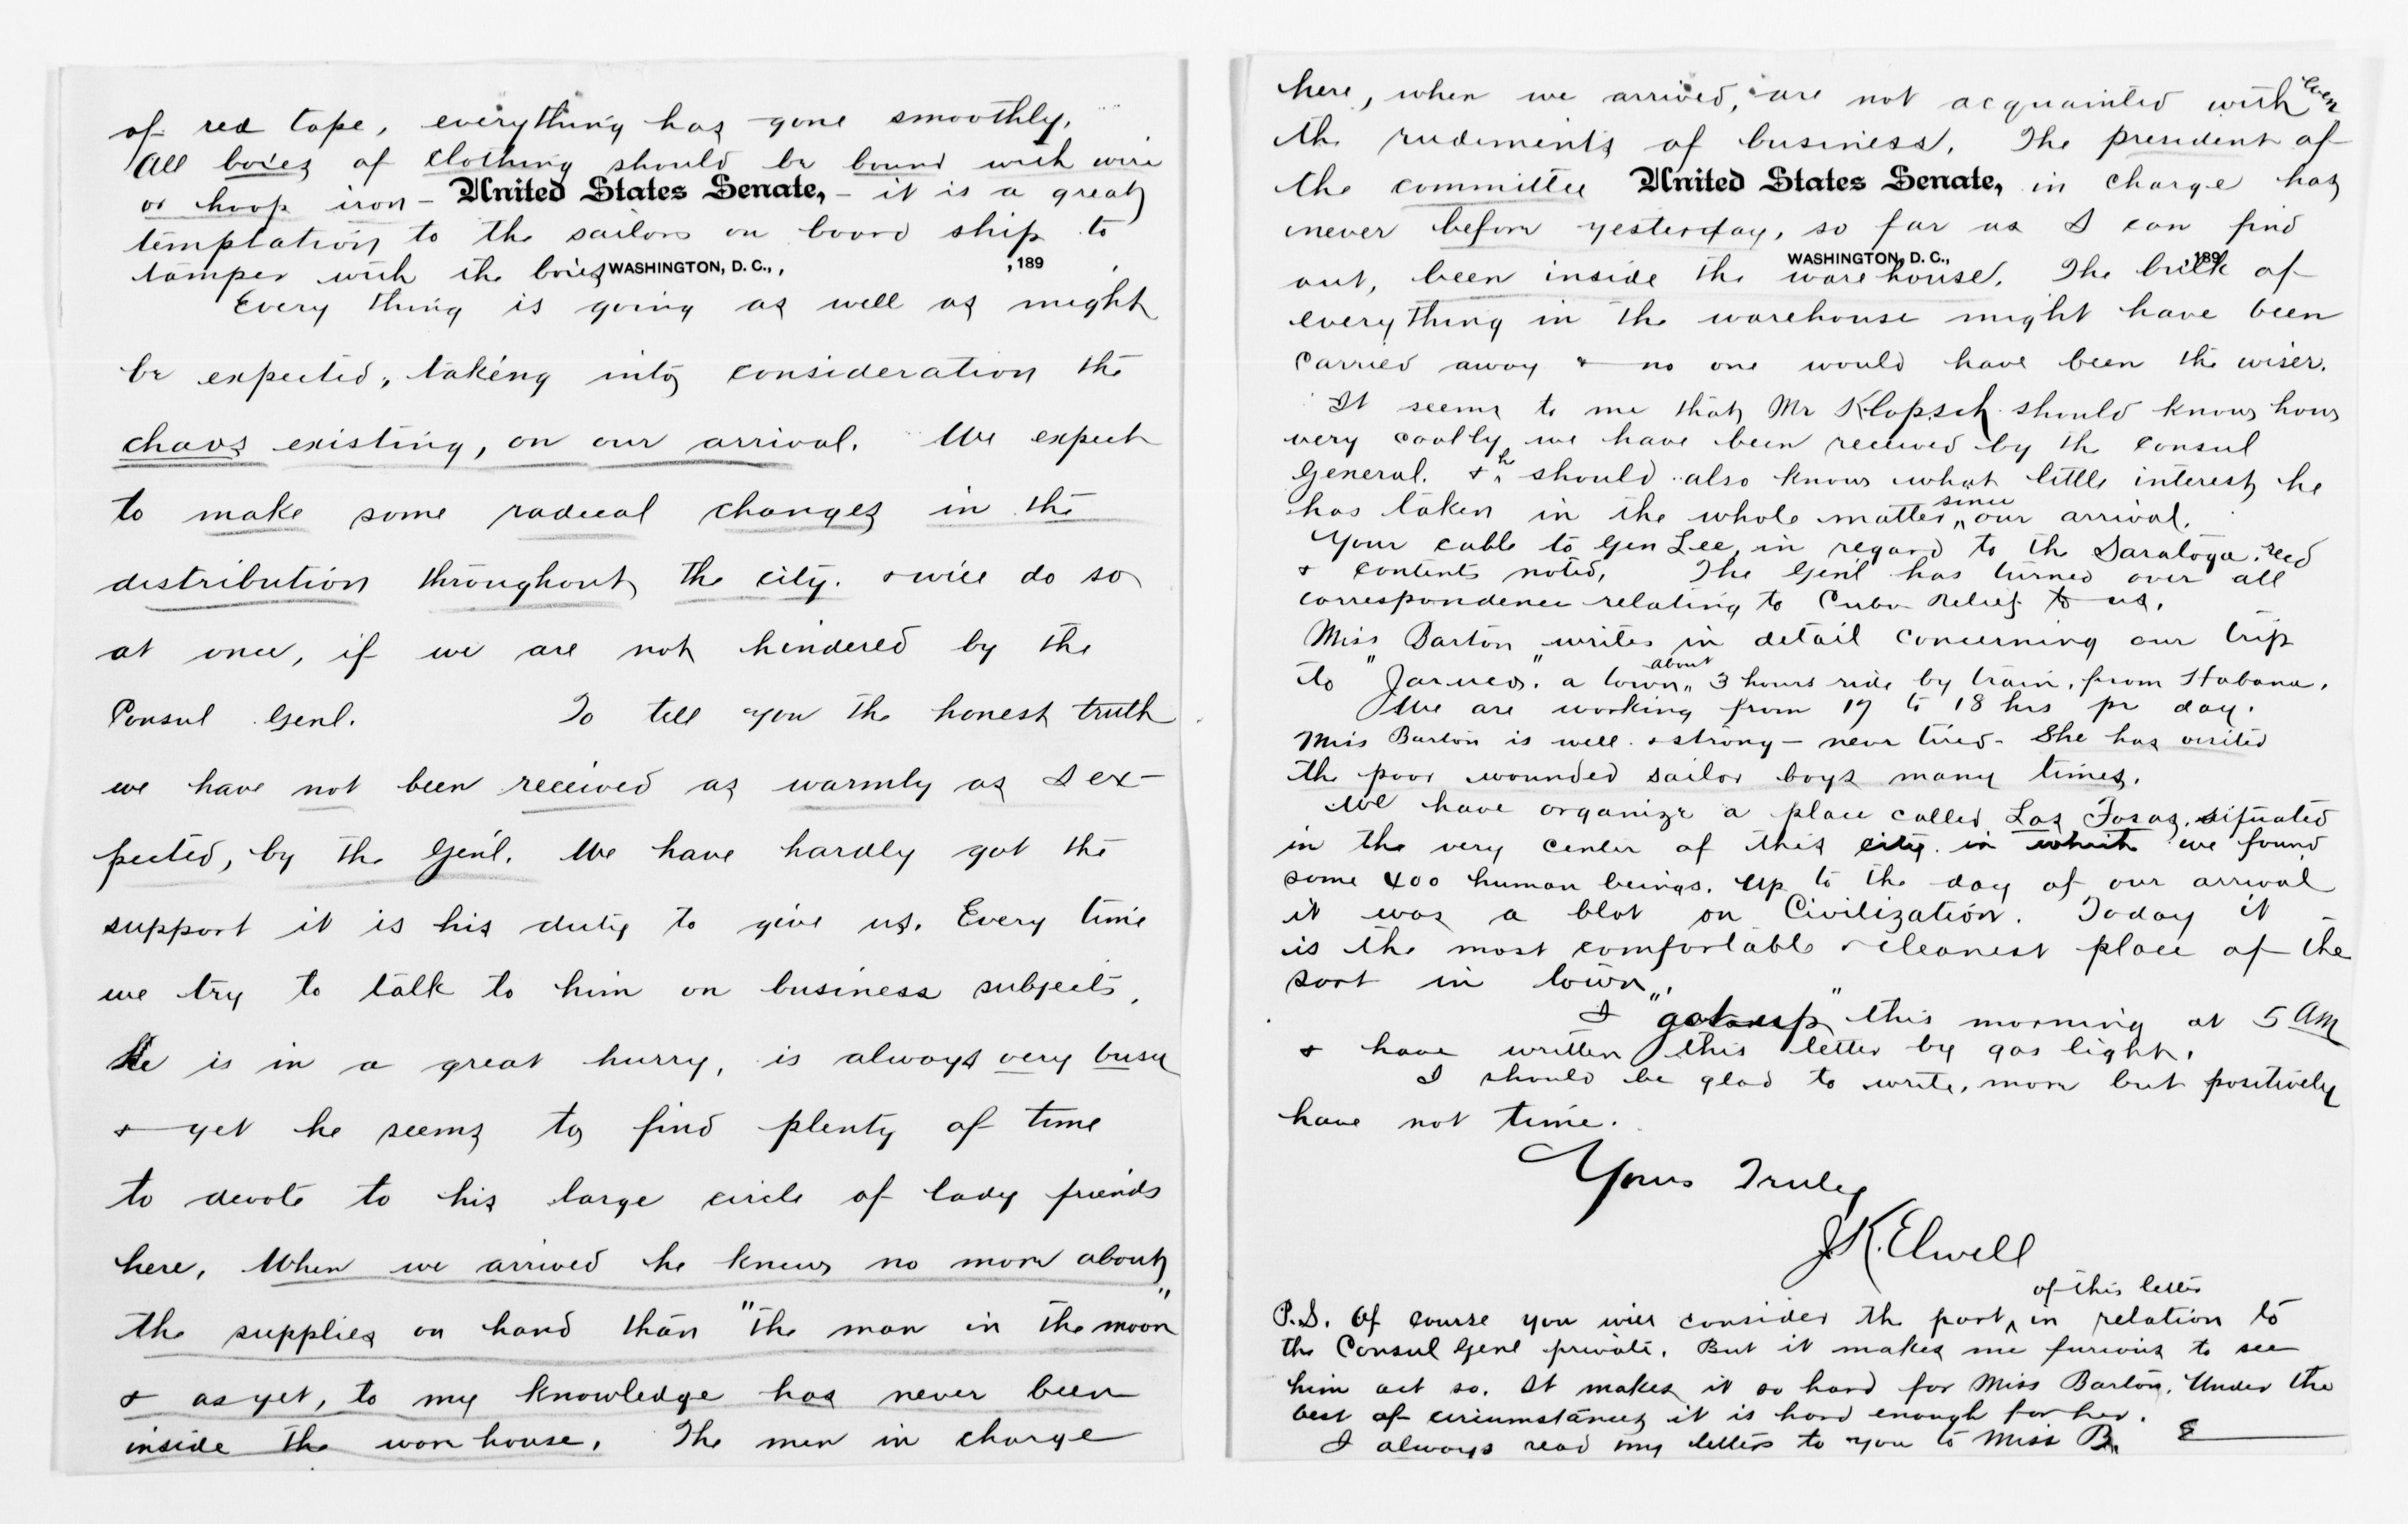 of red tape, everything has gone smoothly.
All boxes of clothing should be bound with wire
or hoop iron - United States Senate, - it is a great
temptation to the sailors on board ship to
tamper with the boxes WASHINGTON, D. C., , 189
Every thing is going as well as might
be expected, taking into consideration the
chaos existing, on our arrival. We expect
to make some radical changes in the
distribution throughout the city. & will do so
at once, if we are not hindered by the
Consul Genl. To tell you the honest truth
we have not been received as warmly as I ex-
pected, by the Gen'l. We have hardly got the
support it is his duty to give us. Every time
we try to talk to him on business subjects,
he is in a great hurry, is always very busy
& yet he seems to find plenty of time
to devote to his large circle of lady friends
here. When we arrived he knew no more about
the supplies on hand than "the man in the moon"
& as yet, to my knowledge has never been
inside the ware house. The men in charge
here, when we arrived, are not acquainted with even
the rudiments of business. The president of
the committee United States Senate, in charge has
never before yesterday, so far as I can find
WASHINGTON, D. C., 189
out, been inside the ware house. The bulk of
everything in the warehouse might have been
carried away & no one would have been the wiser.
It seems to me that Mr Klopsch should know how
very coolly we have been received by the Consul
General. & he should also know what little interest he
has taken in the whole matter since our arrival.
Your cable to Gen Lee, in regard to the Saratoga. recd
& contents noted. The Gen'l has turned over all
correspondence relating to Cuba Relief to us.
Miss Barton writes in detail concerning our trip
to "Jaruco", a town about 3 hours ride by train, from Habana.
We are working from 17 to 18 hrs pr day.
Miss Barton is well & strong - never tired - She has visited
the poor wounded sailor boys many times.
We have organize a place called Las Fosas, situated
in the very center of this city. in which we found
some 400 human beings. Up to the day of our arrival
it was a blot on Civilization. Today it
is the most comfortable & cleanest place of the
sort in town.
I "got up" this morning at 5 AM
& have written this letter by gas light.
I should be glad to write, more but positively
have not time.
Yours Truly
J.K. Elwell
P.S. Of course you will consider the part of this letter in relation to
the Consul Genl private. But it makes me furious to see
him act so. It makes it so hard for Miss Barton. Under the
best of circumstances it is hard enough for her.
I always read my letters to you to Miss B. E